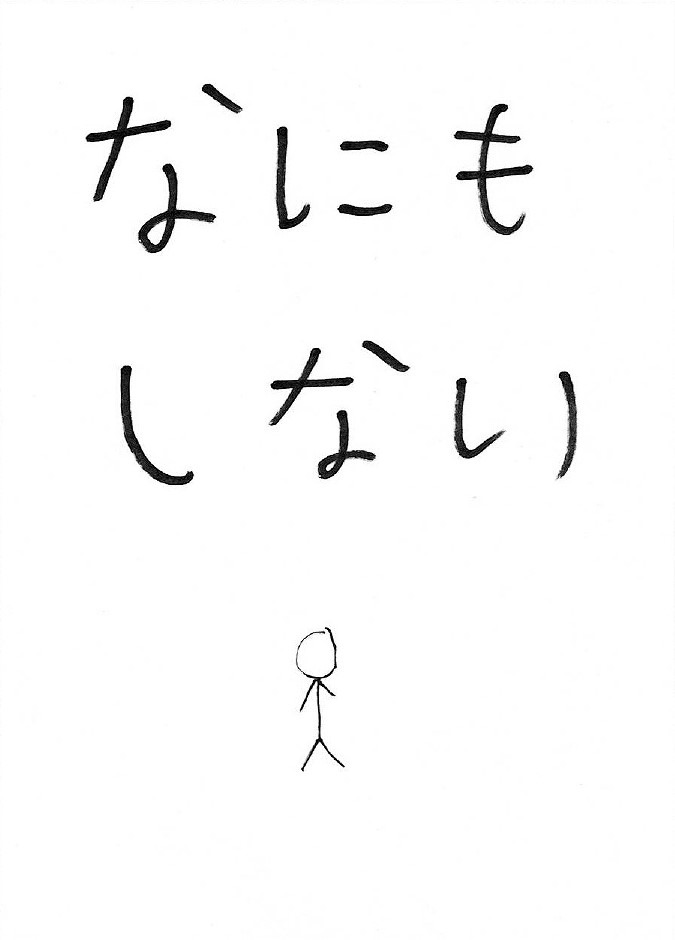 なにも
しない